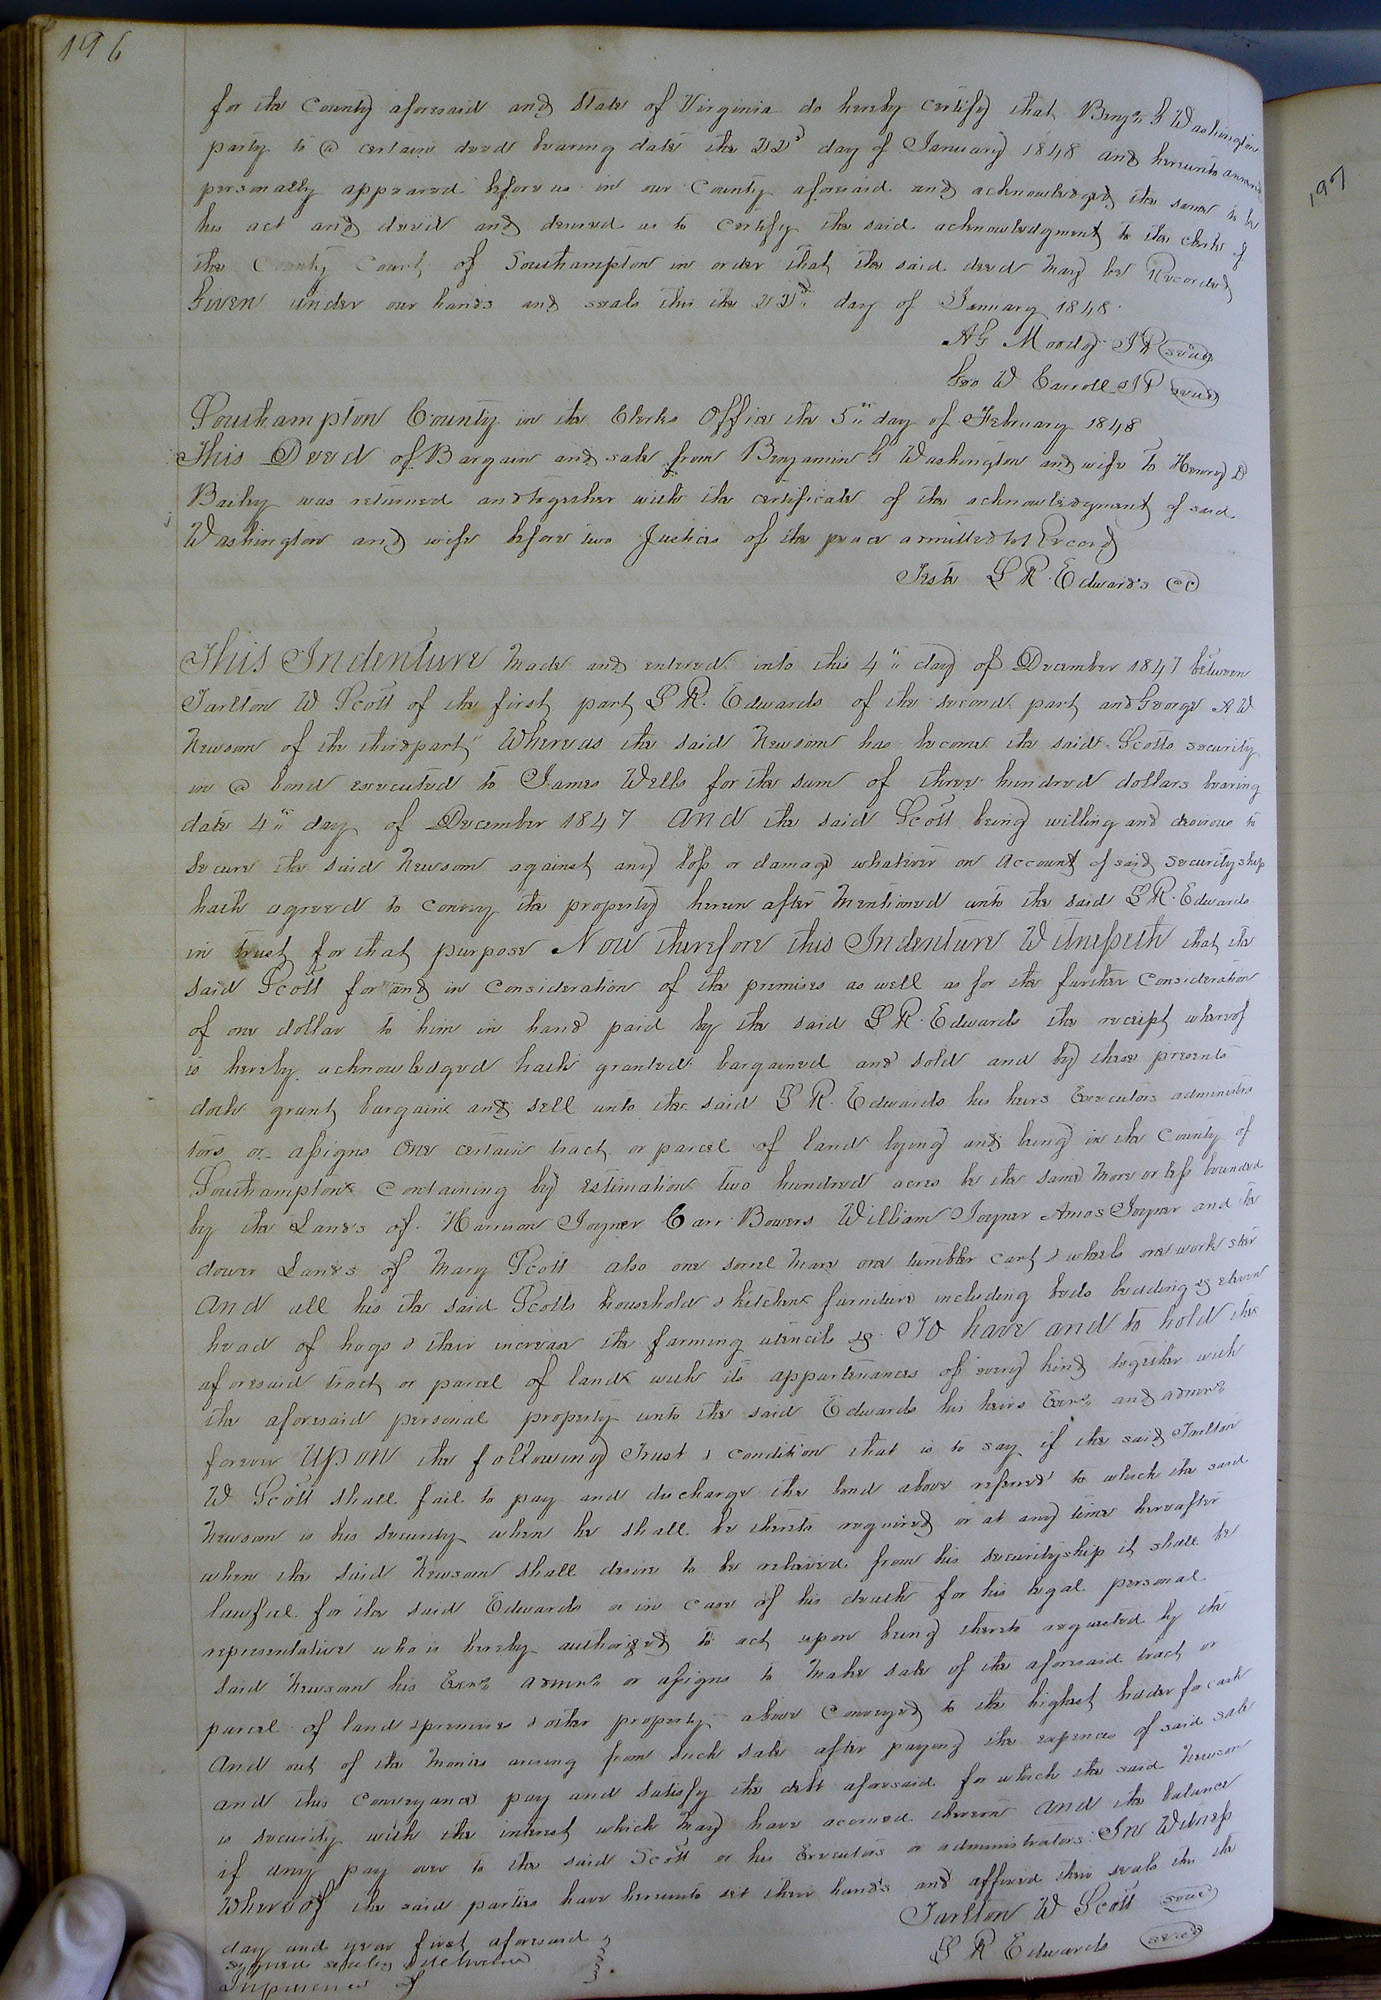 196
for the County aforesaid and State of Virginia do hereby certify that Benjn. G Washington
party to a certain deed bearing date the 22d day of January 1848 and hereunto annexed
personally appeared before us in our County aforesaid and acknowledged the same to be
his act and deed and desired us to certify the said acknowledgment to the clerk of
the County Court of Southampton in order that the said deed may be Recorded
Given under our hands and seals this the 22d day of January 1848.
AG Moody JP seal
Geo W Carroll JP seal
Southampton County in the Clerks Office the 5th day of February 1848
This Deed of Bargain and sale from Benjamin G Washington and wife to Henry D
Bailey was returned and together with the certificate of the acknowledgment of said
Washington and wife before two Justices of the peace admitted to Record
Teste L R. Edwards CC
This Indenture Made and entered into this 4th day of December 1847 between
Tarlton W Scott of the first part L R. Edwards of the second part and George A W
Newsom of the third part" Whereas the said Newsom has become the said Scotts security
in a bond executed to James Wells for the sum of three hundred dollars bearing
date 4th day of December 1847 And the said Scott being willing and desirous to
secure the said Newsom against any loss or damage whatever on account of said securityship
hath agreed to convey the property herein after mentioned unto the said L R. Edwards
in trust for that purpose Now therefore this Indenture Witnesseth that the
said Scott for and in consideration of the premises as well as for the further consideration
of one dollar to him in hand paid by the said L R. Edwards the receipt whereof
is hereby acknowledged hath granted bargained and sold and by these presents
doth grant bargain and sell unto the said L R. Edwards his heirs Executors administra
tors or assigns One certain tract or parcel of land lying and being in the County of
Southampton Containing by estimation two hundred acres be the same more or less bounded
by the Lands of Harrison Joyner Carr Bowers William Joyner Amos Joyner and the
dower Lands of Mary Scott also one sorrel mare one tumbler cart & wheels one work steer
And all his the said Scotts household & kitchen furniture including beds bedding &c eleven
head of hogs & their increase the farming utencils &c. To have and to hold the
aforesaid tract or parcel of land with its appurtenances of every kind together with
the aforesaid personal property unto the said Edwards his heirs Exrs. and admrs
forever Upon the following Trust & condition that is to say if the said Tarlton
W Scott shall fail to pay and discharge the bond above referred to which the said
Newsom is his security when he shall be thereto required or at any time hereafter
when the said Newsom shall desire to be relieved from his securityship it shall be
lawful for the said Edwards or in case of his death for his legal personal
representative who is hereby authorized to act upon being thereto requested by the
said Newsom his Exrs admrs or assigns to make sale of the aforesaid tract or
parcel of land & premises & other property above conveyed to the highest bidder for cash
And out of the monies arising from such sale after paying the expences of said sale
and this conveyance pay and satisfy the debt aforesaid for which the said Newsom
is security with the interest which may have accrued thereon And the balance
if any pay over to the said Scott or his Executors or administrators. In Witness
Whereof the said parties have hereunto set their hands and affixed their seals this the
day and year first aforesaid
Tarlton W Scott seal
signed sealed & delivered
L R Edwards seal
In presence of
197